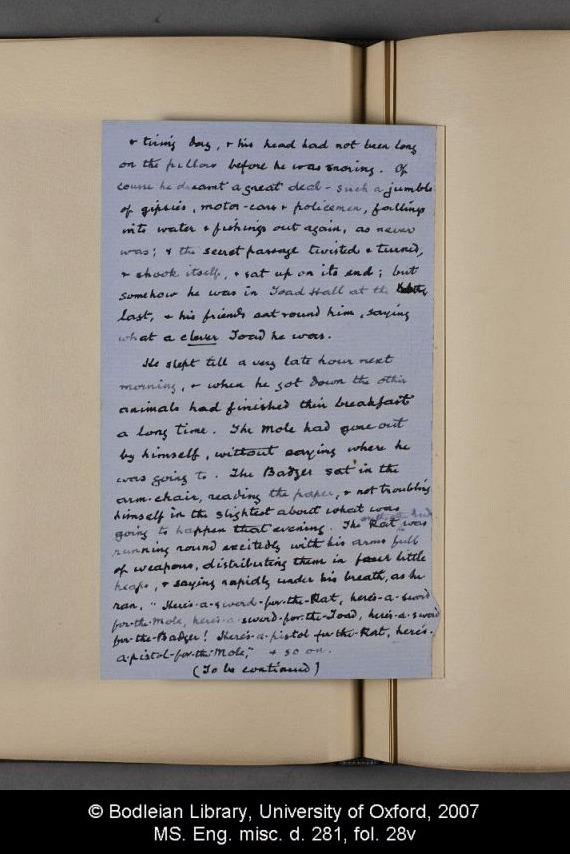 & tiring day, & his head had not been long
on the pillow before he was snoring. Of
course he dreamt a great deal - such a jumble
of gipsies, motor-cars & policemen, fallings
into water & fishings out again, as never
was; & the secret passage twisted & turned,
& shook itself, & sat up on its end; but
somehow he was in Toad Hall at the
last, & his friends sat round him, saying
what a clever Toad he was.
He slept till a very late hour next
morning, & when he got down the other
animals had finished their breakfast
a long time. The Mole had gone out
by himself, without saying where he
was going to. The Badger sat in the
arm-chair, reading the paper, & not troubling
himself in the slightest about what was
going to happen that evening. The Rat was
running round excitedly with his arms full
of weapons, distributing them in four little
heaps, & saying rapidly under his breath, as he
ran, "Here's-a-sword-for-the-Rat, here's-a-sword
for-the-Mole, here's-a-sword-for-the-Toad, here's-a-sword
for-the-Badger! Here's-a-pistol-for-the-Rat, here's-
a-pistol-for-the-Mole," & so on.
(To be continued)
© Bodleian Library, University of Oxford, 2007
MS. Eng. misc. d. 281, fol. 28v